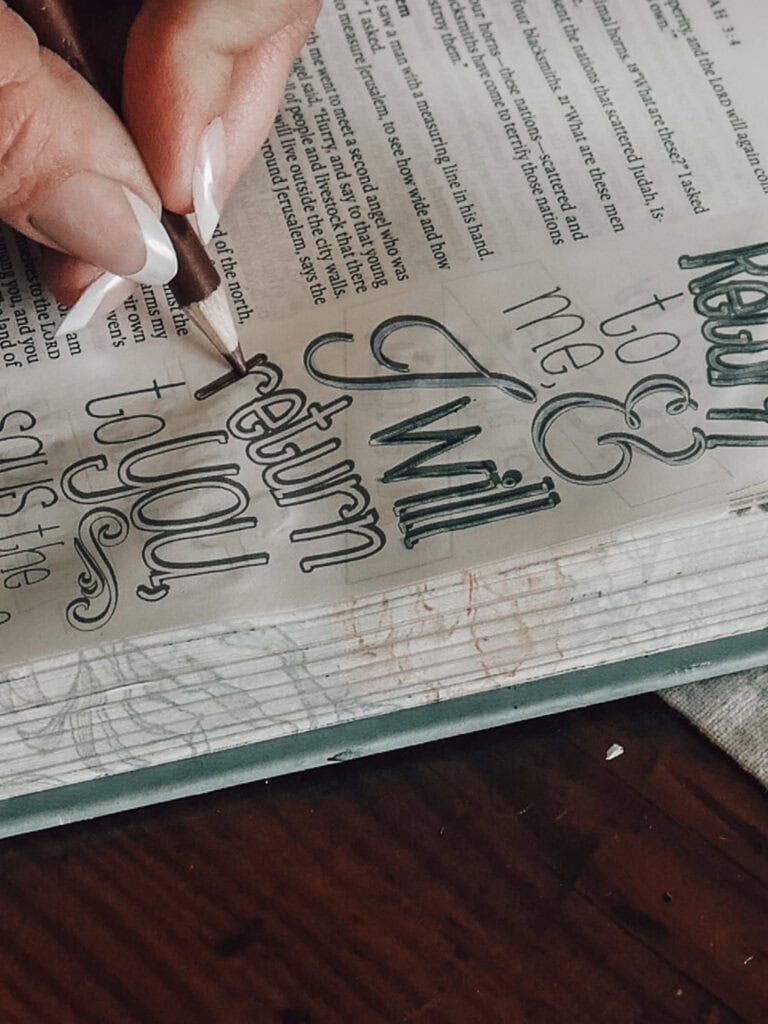 AH 3:4
perity, and the LORD will again com
own.'"
inal horns. 19 "What are these?" I asked
sent the nations that scattered Judah, Is-
four blacksmiths. 21 "What are these men
our horns—these nations—scattered and
acksmiths have come to terrify those nations
stroy them."
em
saw a man with a measuring line in his hand.
" I asked.
to measure Jerusalem, to see how wide and how
me went to meet a second angel who was
angel said, "Hurry, and say to that young
of people and livestock that there
will live outside the city walls.
around Jerusalem, says the
of the north,
the
own
arms my
ven's
am
to the LORD
among you, and you
land of
Return
to
me, &
I will
return
to
you,
says the